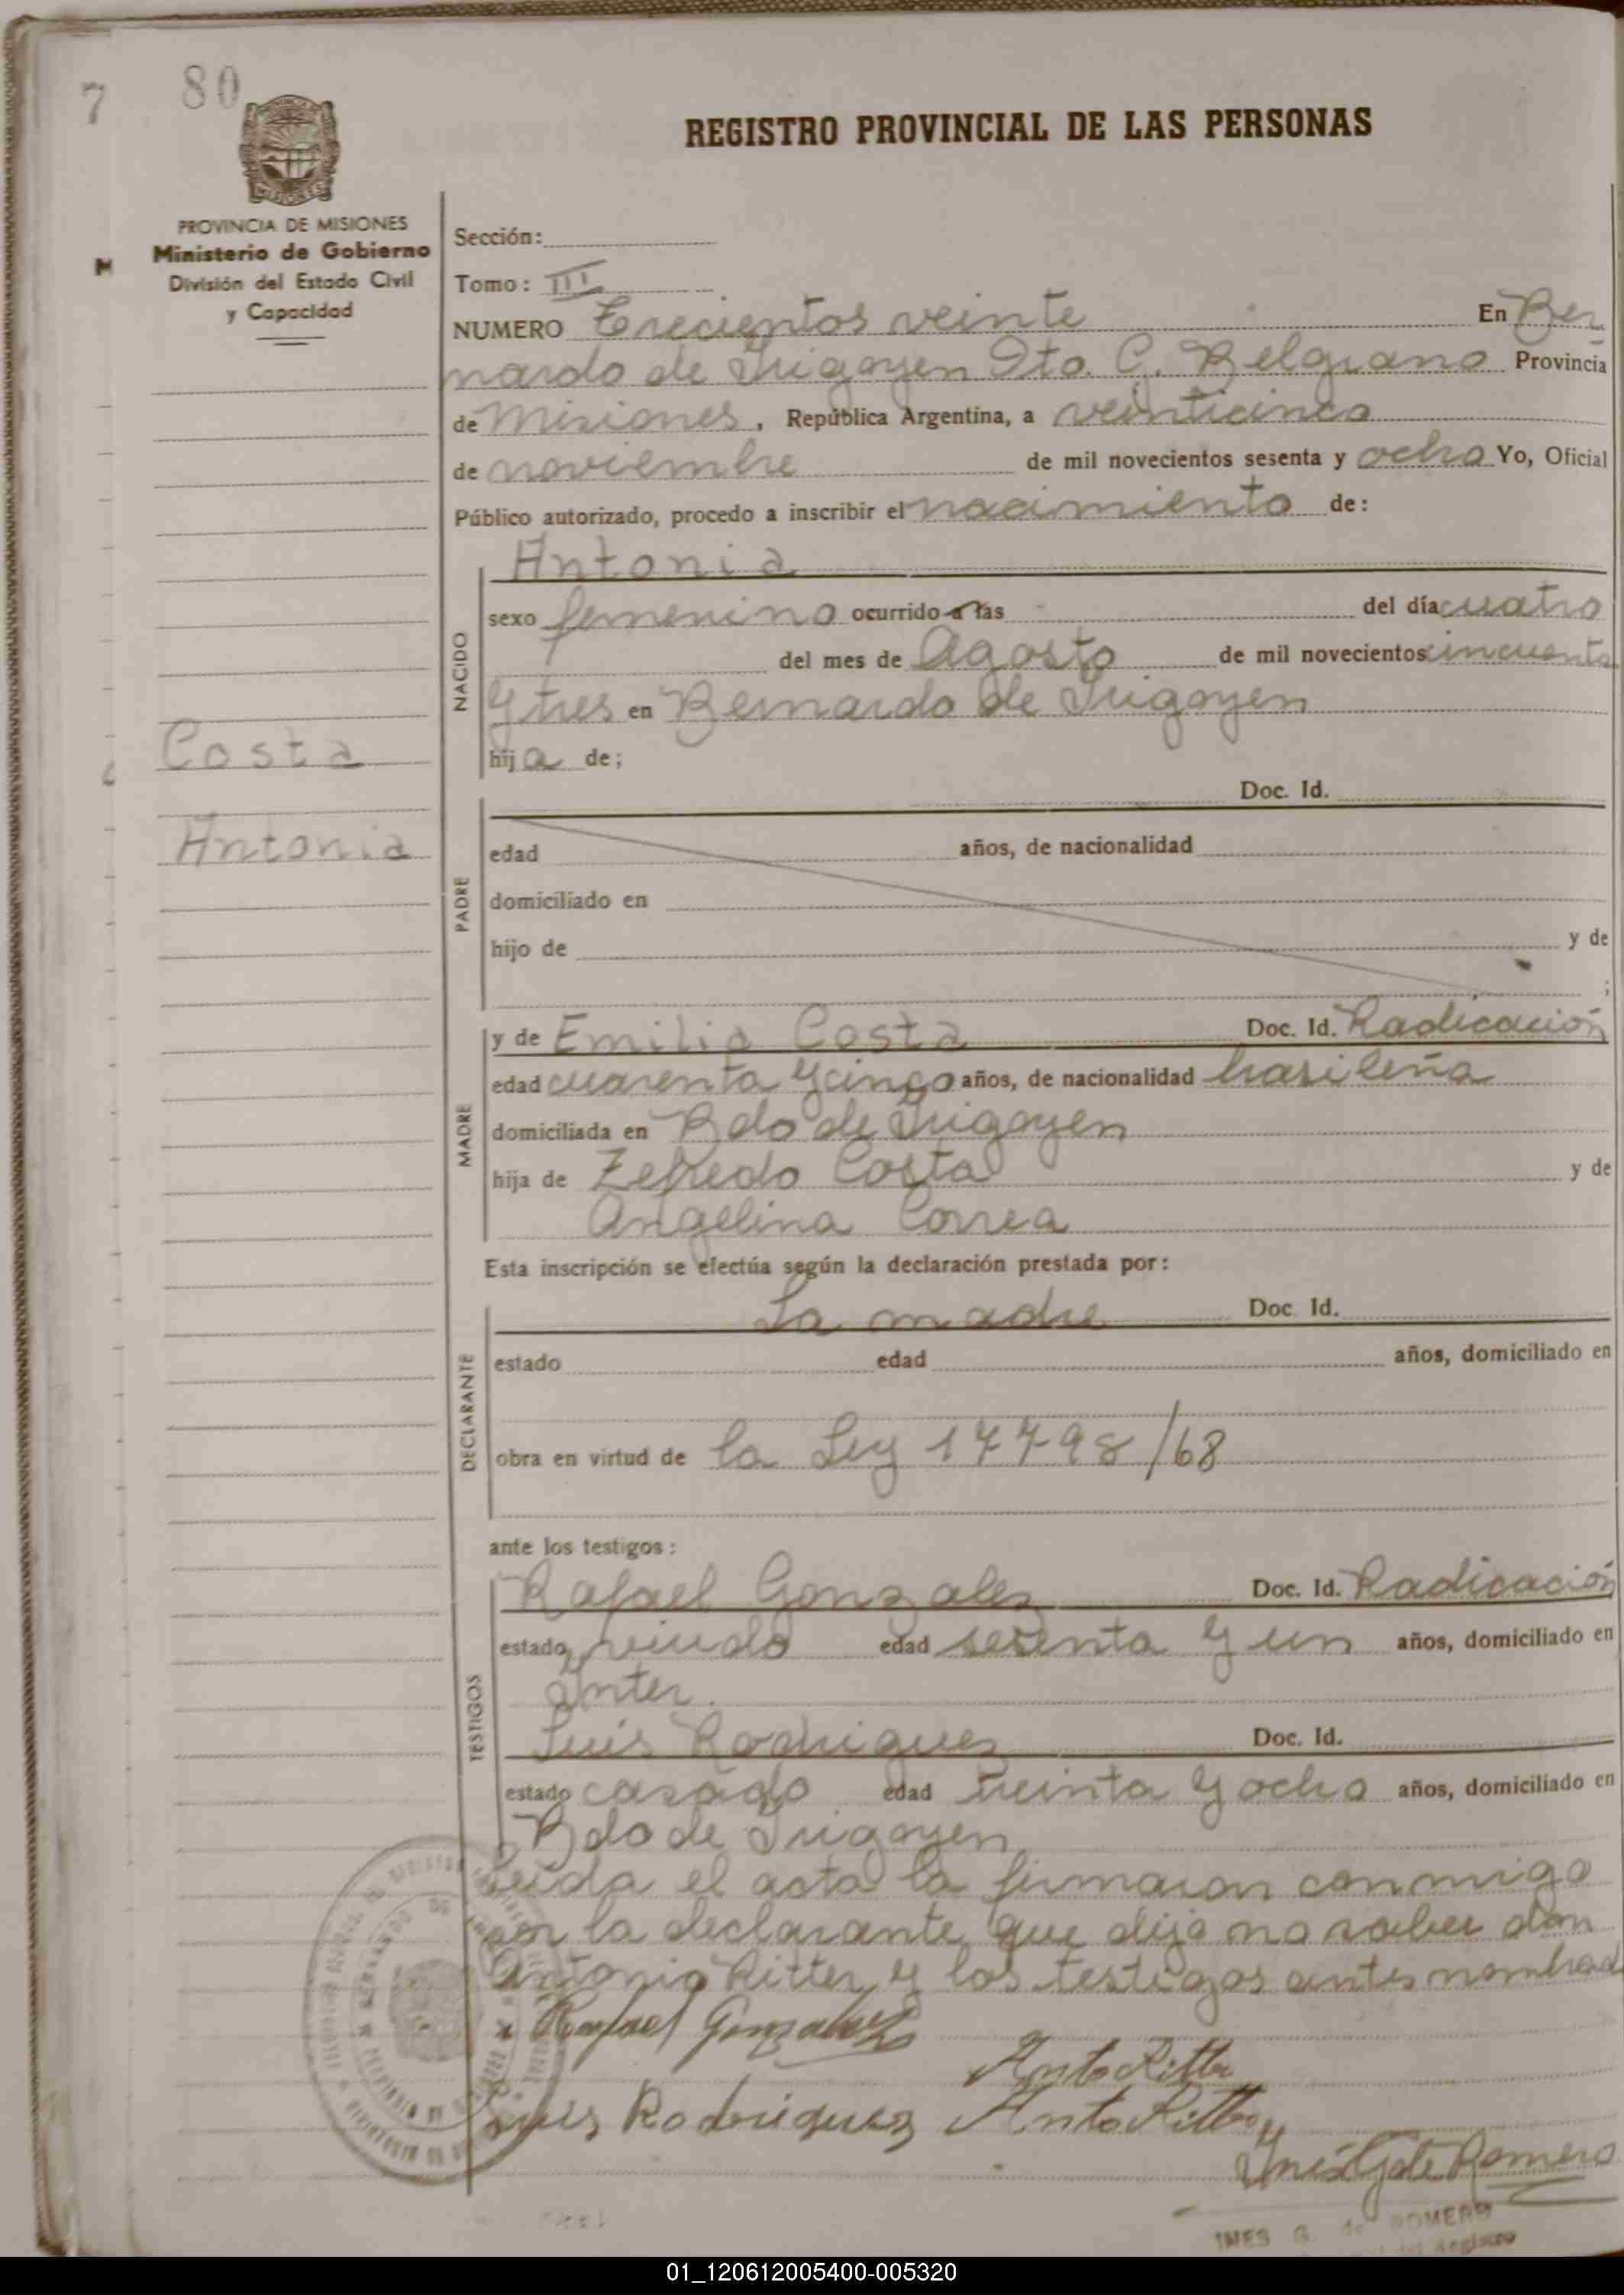 7 80
REGISTRO PROVINCIAL DE LAS PERSONAS
PROVINCIA DE MISIONES
Ministerio de Gobierno
División del Estado Civil
y Capacidad
M
Sección:
Tomo: III
NUMERO Trecientos veinte En Ber
nardo de Irigoyen Dto. G. Belgrano Provincia
de Misiones, República Argentina, a veinticinco
de noviembre de mil novecientos sesenta y ocho Yo, Oficial
Público autorizado, procedo a inscribir el nacimiento de:
NACIDO
Antonia
sexo femenino ocurrido a las - del día cuatro
del mes de Agosto de mil novecientos cincuenta
y tres en Bernardo de Irigoyen
hija de;
Costa
Antonia
PADRE
Doc. Id.
edad años, de nacionalidad
domiciliado en
hijo de y de
;
MADRE
y de Emilia Costa Doc. Id. Radicación
edad cuarenta y cinco años, de nacionalidad brasileña
domiciliada en Bdo de Irigoyen
hija de Zefredo Costa y de
Angelina Correa
Esta inscripción se efectúa según la declaración prestada por:
DECLARANTE
La madre Doc. Id.
estado edad años, domiciliado en
obra en virtud de la Ley 17798/68
ante los testigos:
TESTIGOS
Rafael Gonzales Doc. Id. Radicación
estado viudo edad sesenta y un años, domiciliado en
Inter.
Luis Rodrigues Doc. Id.
estado casado edad treinta y ocho años, domiciliado en
Bdo de Irigoyen
Leida el acta la firmaron conmigo
por la declarante que dijo no saber don
Antonio Ritter y los testigos antes nombrad
Rafael Gonzalez
Anto Ritter
Luis Rodriguez Anto Ritter
Inés G de Romero
INES G. de ROMERO
del Registro
01_120612005400-005320